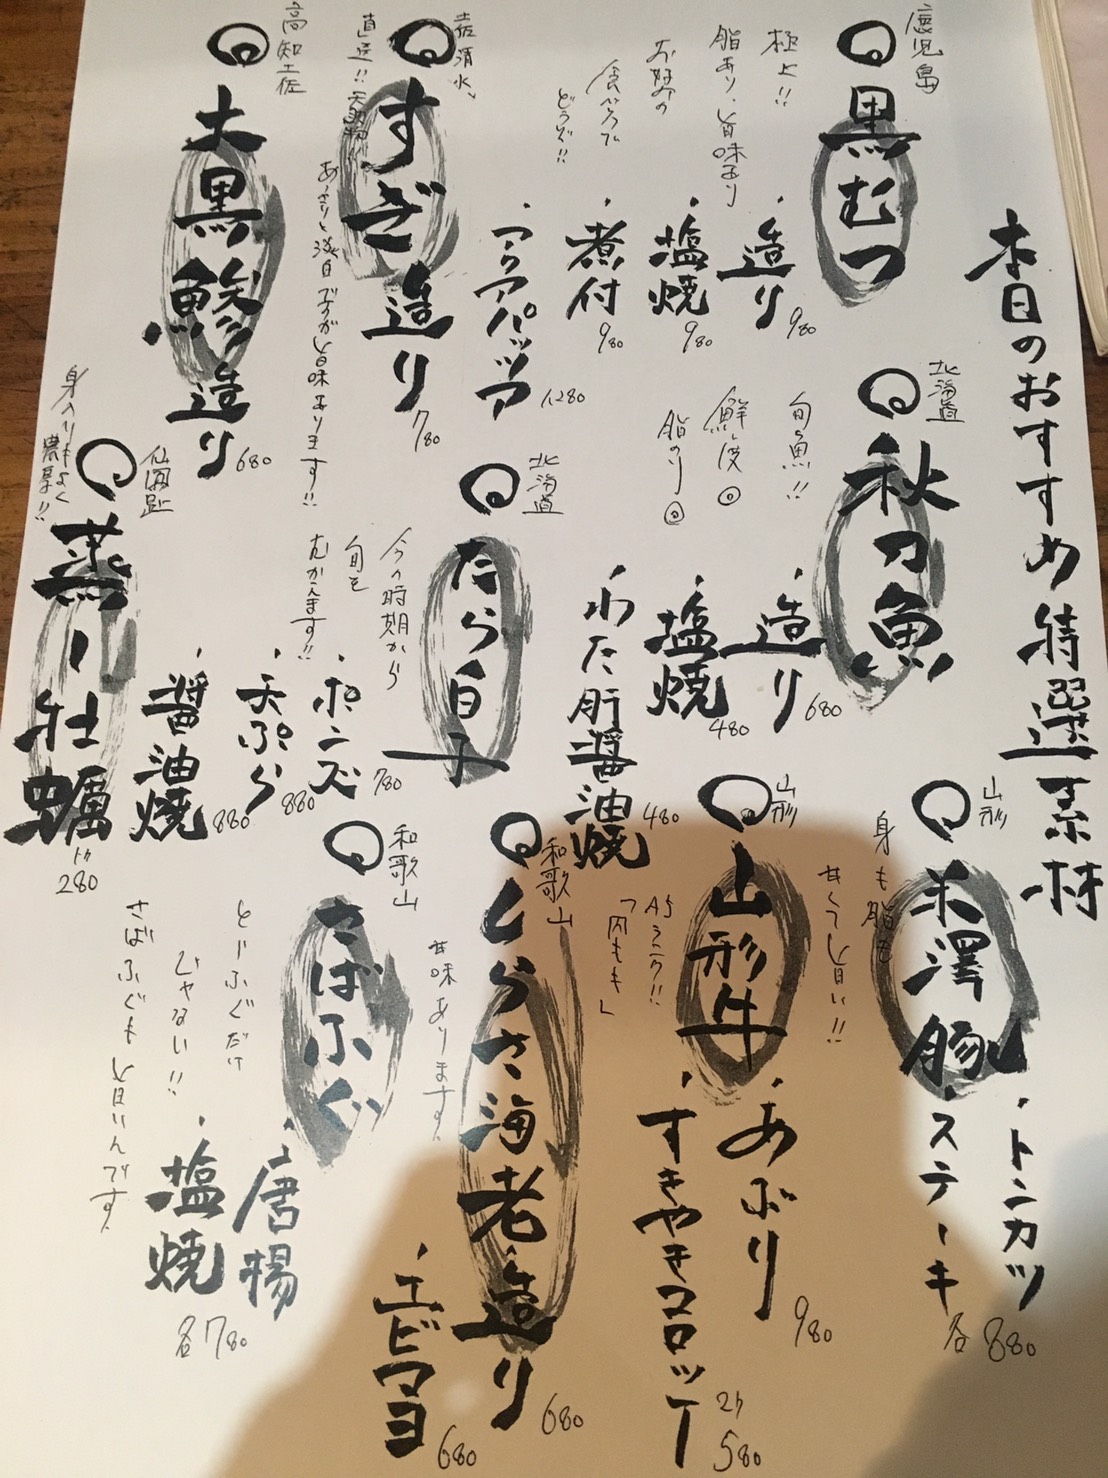 本日のおすすめ特選素材
鹿児島
黒むつ
極上!!
脂あり、旨味あり
お好みの
食べ方で
どうぞ!!
・造り 980
・塩焼 980
・煮付 980
・アクアパッツァ 1280
土佐清水、
直送!!天然物!!
すぎ造り 780
あっさりと淡白ですが旨味あります!!
高知土佐
大黒鯵造り 680
北海道
秋刀魚
旬の魚!!
鮮度◎
脂のり◎
・造り 680
・塩焼 480
・わた肝醤油焼 480
北海道
たら白子
今の時期から
旬を
むかえます!!
・ポンズ 780
・天ぷら 880
・醤油焼 880
身入りもよく
濃厚!!
蒸し牡蠣
1ヶ 280
山形
米澤豚
身も脂も
甘くて旨い!!
・トンカツ
・ステーキ
各880
山形
山形牛
A5ランク!!
「内もも」
・あぶり 980
・すきやきコロッケ
2ヶ 580
和歌山
しらさ海老
甘味あります。
・造り 680
・エビマヨ 680
和歌山
さばふぐ
とらふぐだけ
じゃない!!
さばふぐも旨いんです。
・唐揚
・塩焼
各780